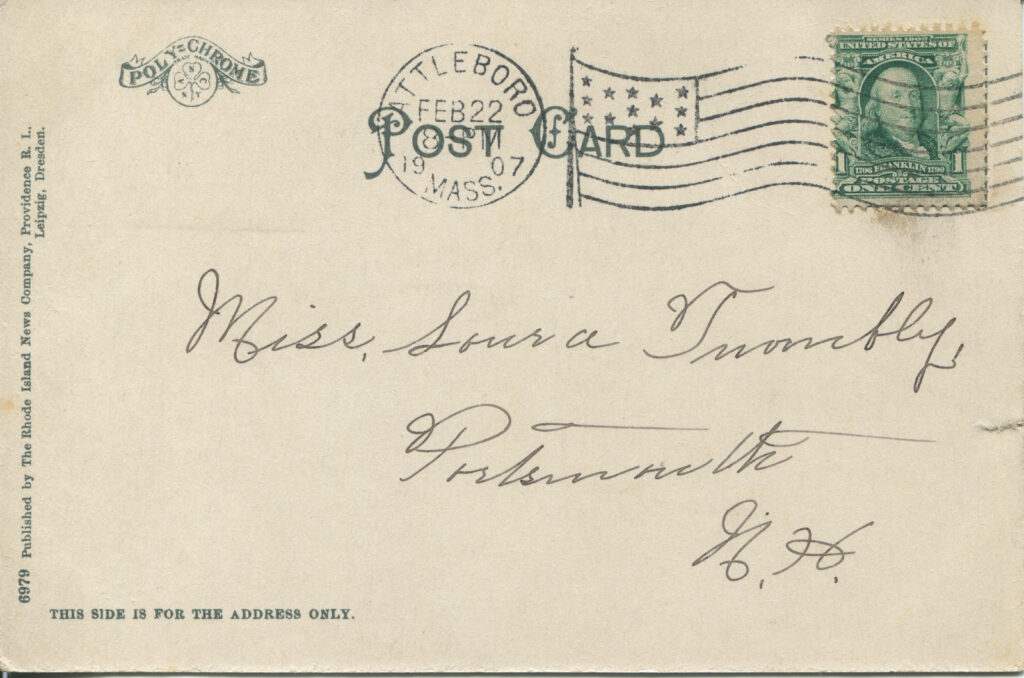 POLY-CHROME
POST CARD
ATTLEBORO
FEB 22
8-
1907
MASS.
SERIES 1902
UNITED STATES OF
AMERICA
1 1
1706 FRANKLIN 1790
POSTAGE
ONE CENT
Miss. Loura Twombly,
Portsmouth
N. H.
6979 Published by The Rhode Island News Company, Providence R. I.,
Leipzig, Dresden.
THIS SIDE IS FOR THE ADDRESS ONLY.